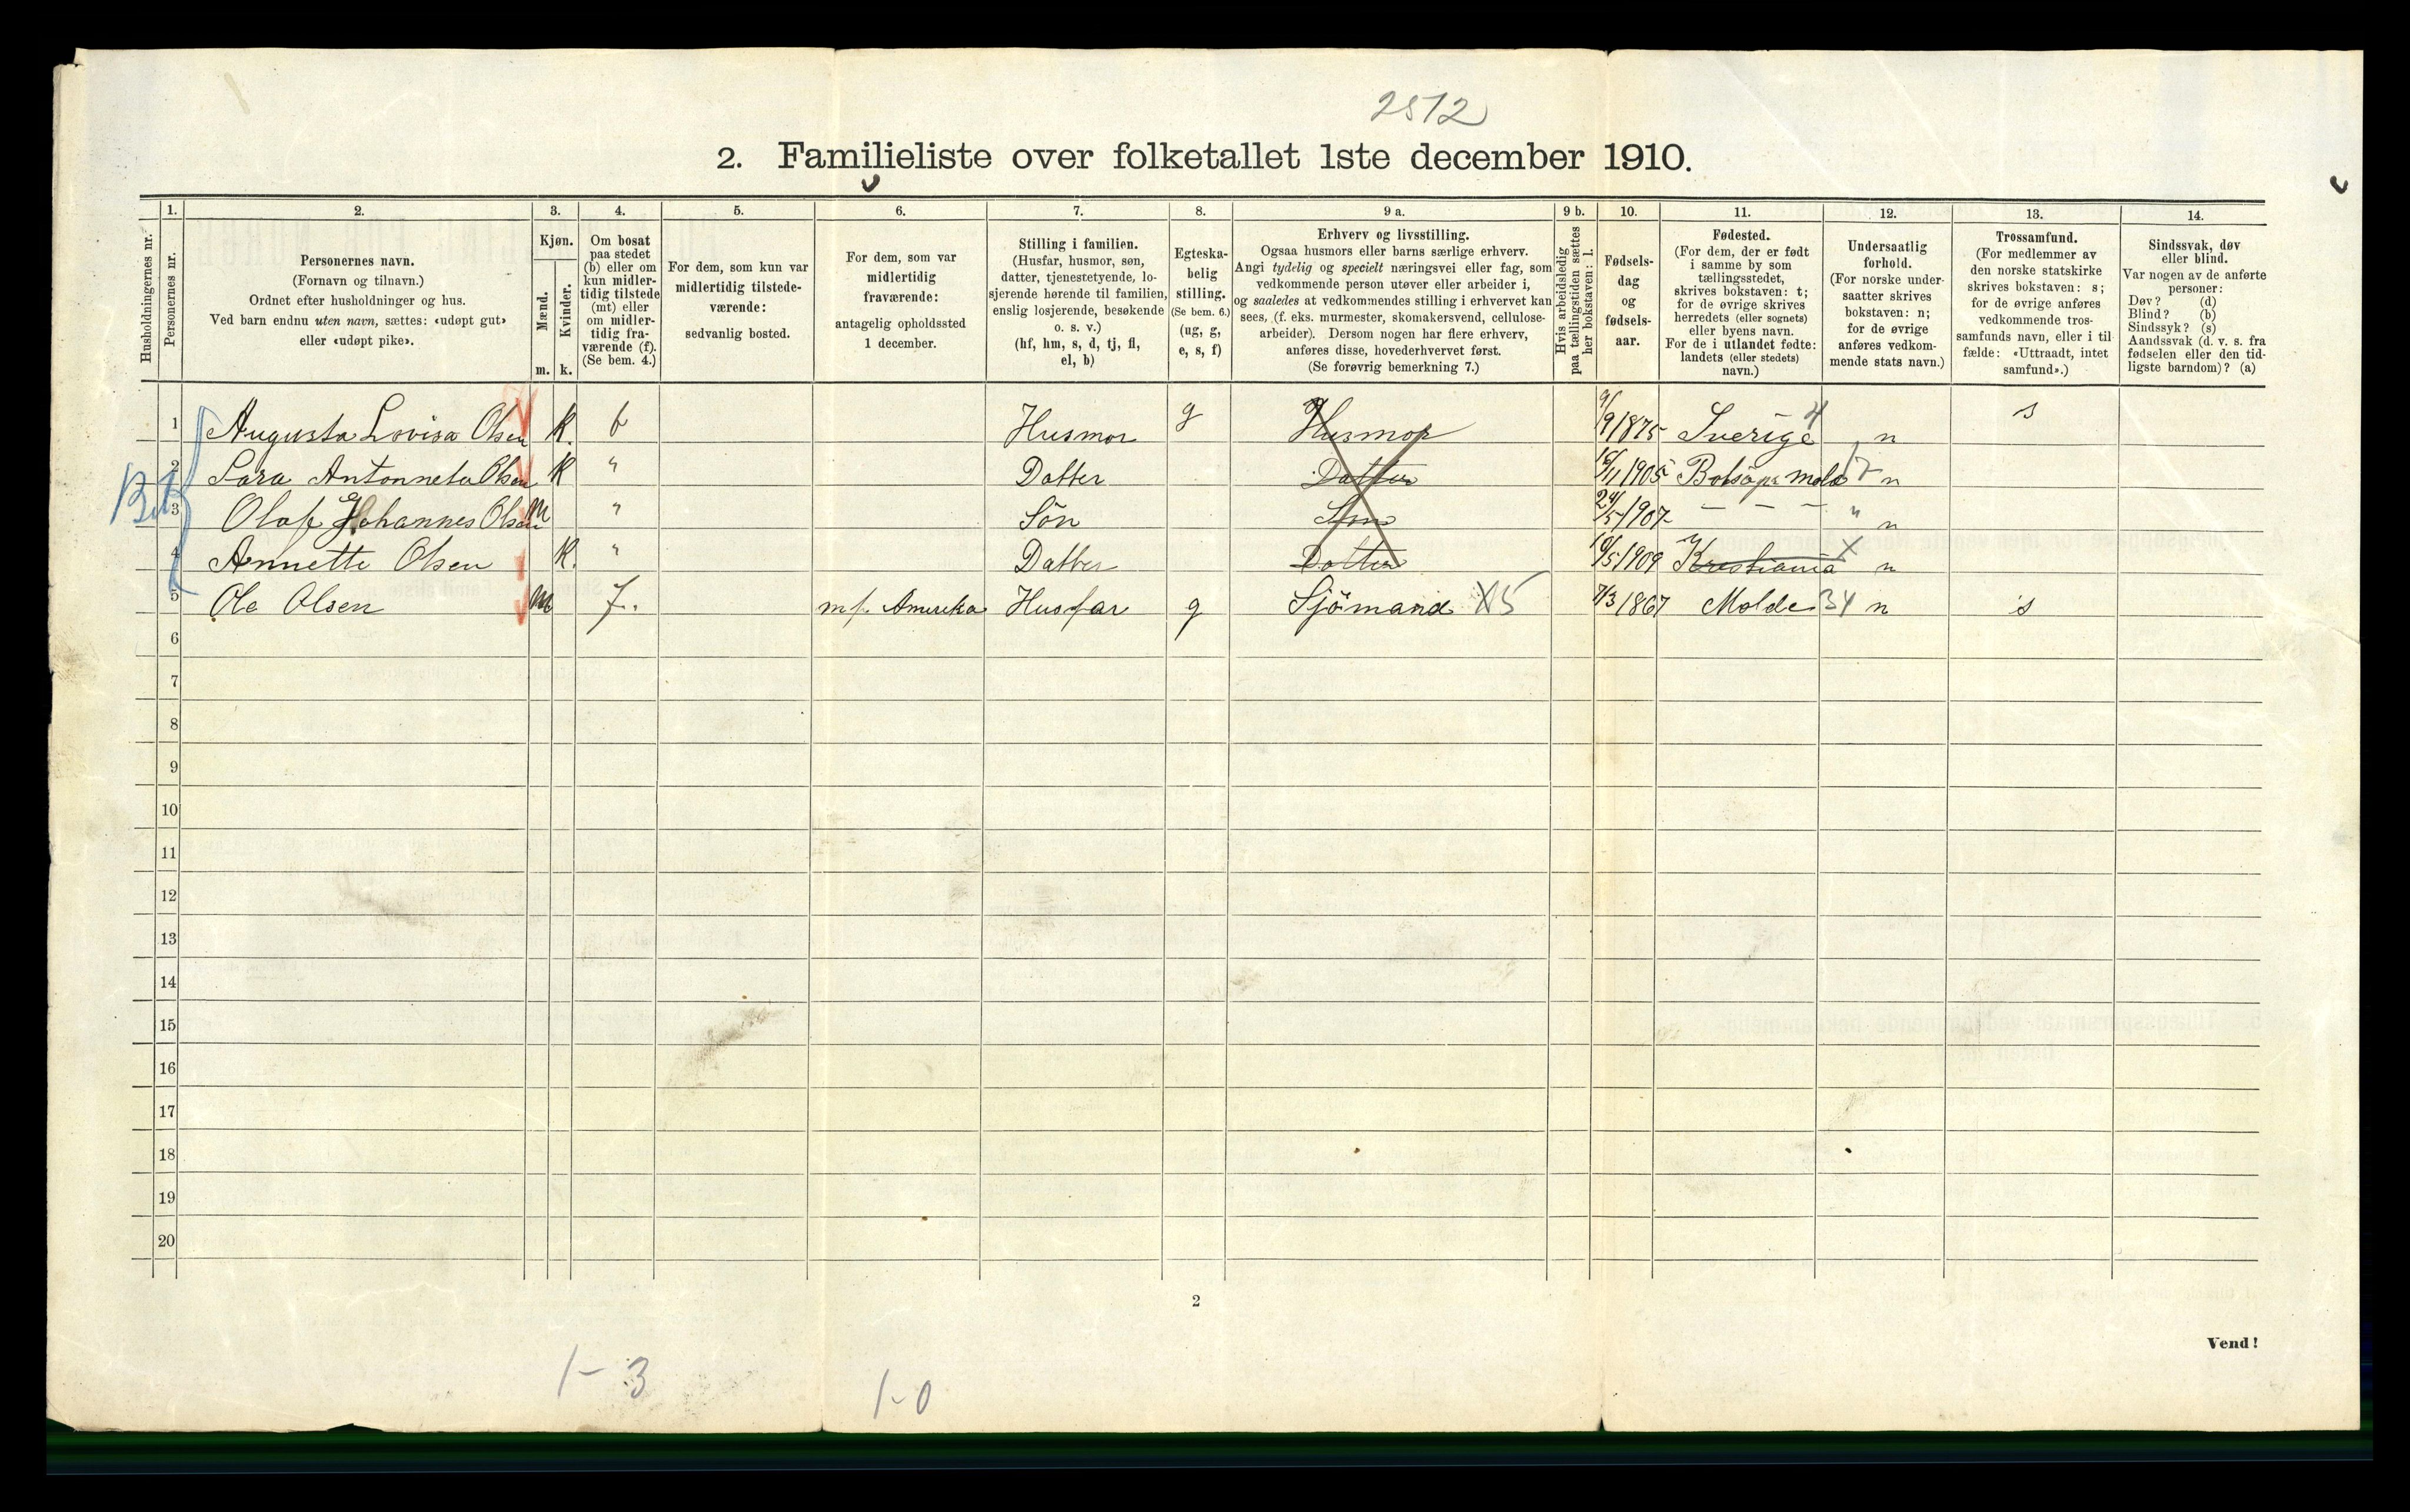 2512
2. Familieliste over folketallet 1ste december 1910.
Husholdningernes nr.
1. Personernes nr.
2. Personernes navn. (Fornavn og tilnavn.) Ordnet efter husholdninger og hus. Ved barn endnu uten navn, sættes: «udøpt gut» eller «udøpt pike».
3. Kjøn. Mænd. m. Kvinder. k.
4. Om bosat paa stedet (b) eller om kun midlertidig tilstede (mt) eller om midlertidig fraværende (f). (Se bem. 4.)
5. For dem, som kun var midlertidig tilstedeværende: sedvanlig bosted.
6. For dem, som var midlertidig fraværende: antagelig opholdssted 1 december.
7. Stilling i familien. (Husfar, husmor, søn, datter, tjenestetyende, losjerende hørende til familien, enslig losjerende, besøkende o. s. v.) (hf, hm, s, d, tj, fl, el, b)
8. Egteskabelig stilling. (Se bem. 6.) (ug, g, e, s, f)
9 a. Erhverv og livsstilling. Ogsaa husmors eller barns særlige erhverv. Angi tydelig og specielt næringsvei eller fag, som vedkommende person utøver eller arbeider i, og saaledes at vedkommendes stilling i erhvervet kan sees, (f. eks. murmester, skomakersvend, cellulosearbeider). Dersom nogen har flere erhverv, anføres disse, hovederhvervet først. (Se forøvrig bemerkning 7.)
9 b. Hvis arbeidsledig paa tællingstiden sættes her bokstaven: l.
10. Fødselsdag og fødselsaar.
11. Fødested. (For dem, der er født i samme by som tællingsstedet, skrives bokstaven: t; for de øvrige skrives herredets (eller sognets) eller byens navn. For de i utlandet fødte: landets (eller stedets) navn.)
12. Undersaatlig forhold. (For norske undersaatter skrives bokstaven: n; for de øvrige anføres vedkommende stats navn.)
13. Trossamfund. (For medlemmer av den norske statskirke skrives bokstaven: s; for de øvrige anføres vedkommende trossamfunds navn, eller i tilfælde: «Uttraadt, intet samfund».)
14. Sindssvak, døv eller blind. Var nogen av de anførte personer: Døv? (d) Blind? (b) Sindssyk? (s) Aandssvak (d. v. s. fra fødselen eller den tidligste barndom)? (a)
1 Augusta Lovisa Olsen K. b Husmor g Husmor 9/9 1875 Sverige 4 n s
2 Sara Antonneta Olsen K " Datter Datter 1905 n
3 Olaf Johannes Olsen M " Søn Søn 24/5 1907 – – – " n
4 Annette Olsen K. " Datter Datter 10/5 1909 Kristiania X n
5 Ole Olsen M f. Amerika Husfar g Sjömand X5 7/3 1867 Molde 34 n s
6
7
8
9
10
11
12
13
14
15
16
17
18
19
20
2
Vend!
1-3
1-0